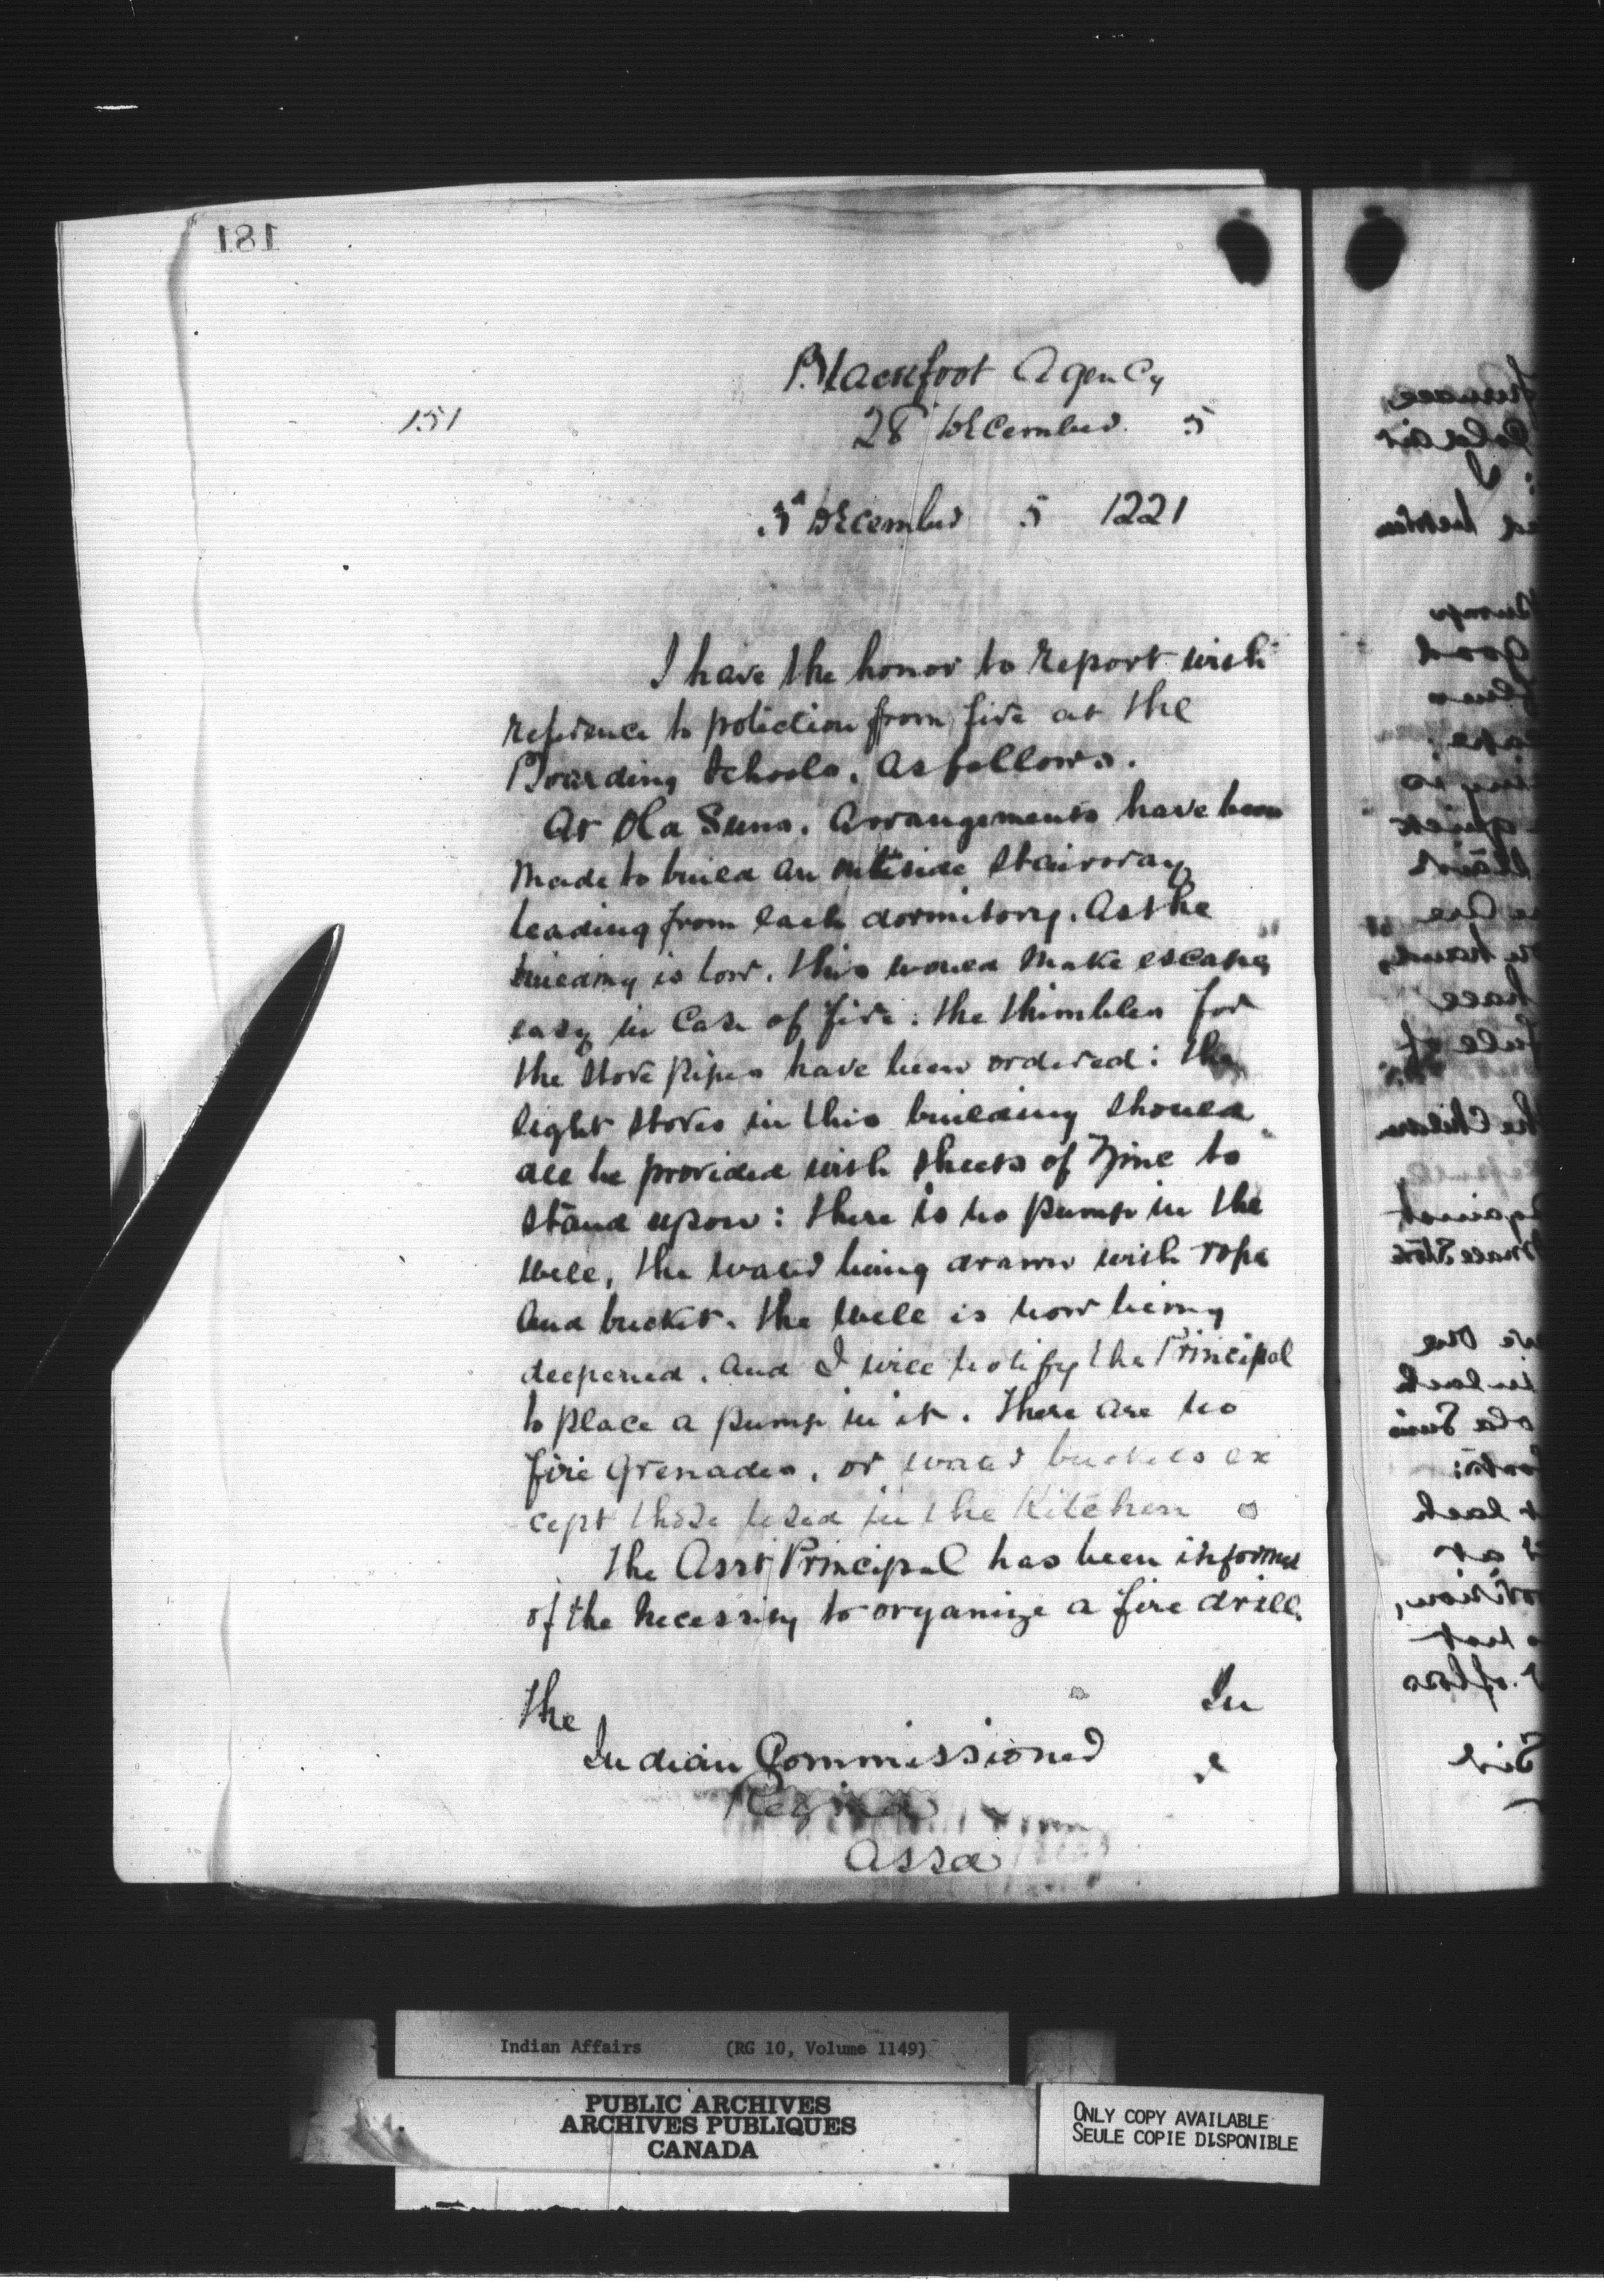 181
Blackfoot Agency
151
28 December 5
5 December 5 1221
I have the honor to report with
reference to protection from fire at the
Boarding Schools. As follows.
At Old Suns. Arrangements have been
made to build an outside stairway
leading from each dormitory. As the
building is low. this would make escape
easy in case of fire: the thimbles for
the stove pipes have been ordered: the
eight stoves in this building should
all be provided with sheets of Zinc to
stand upon: there is no pump in the
well, the water being drawn with rope
and bucket. the well is now being
deepened. and I will notify the Principal
to place a pump in it. There are no
fire Grenades, or water buckets ex
cept those used in the Kitchen
the Asst Principal has been informed
of the necessity to organize a fire drill.
In
The
Indian Commissioner
Regina
Assa
Indian Affairs (RG 10, Volume 1149)
PUBLIC ARCHIVES
ARCHIVES PUBLIQUES
CANADA
ONLY COPY AVAILABLE
SEULE COPIE DISPONIBLE